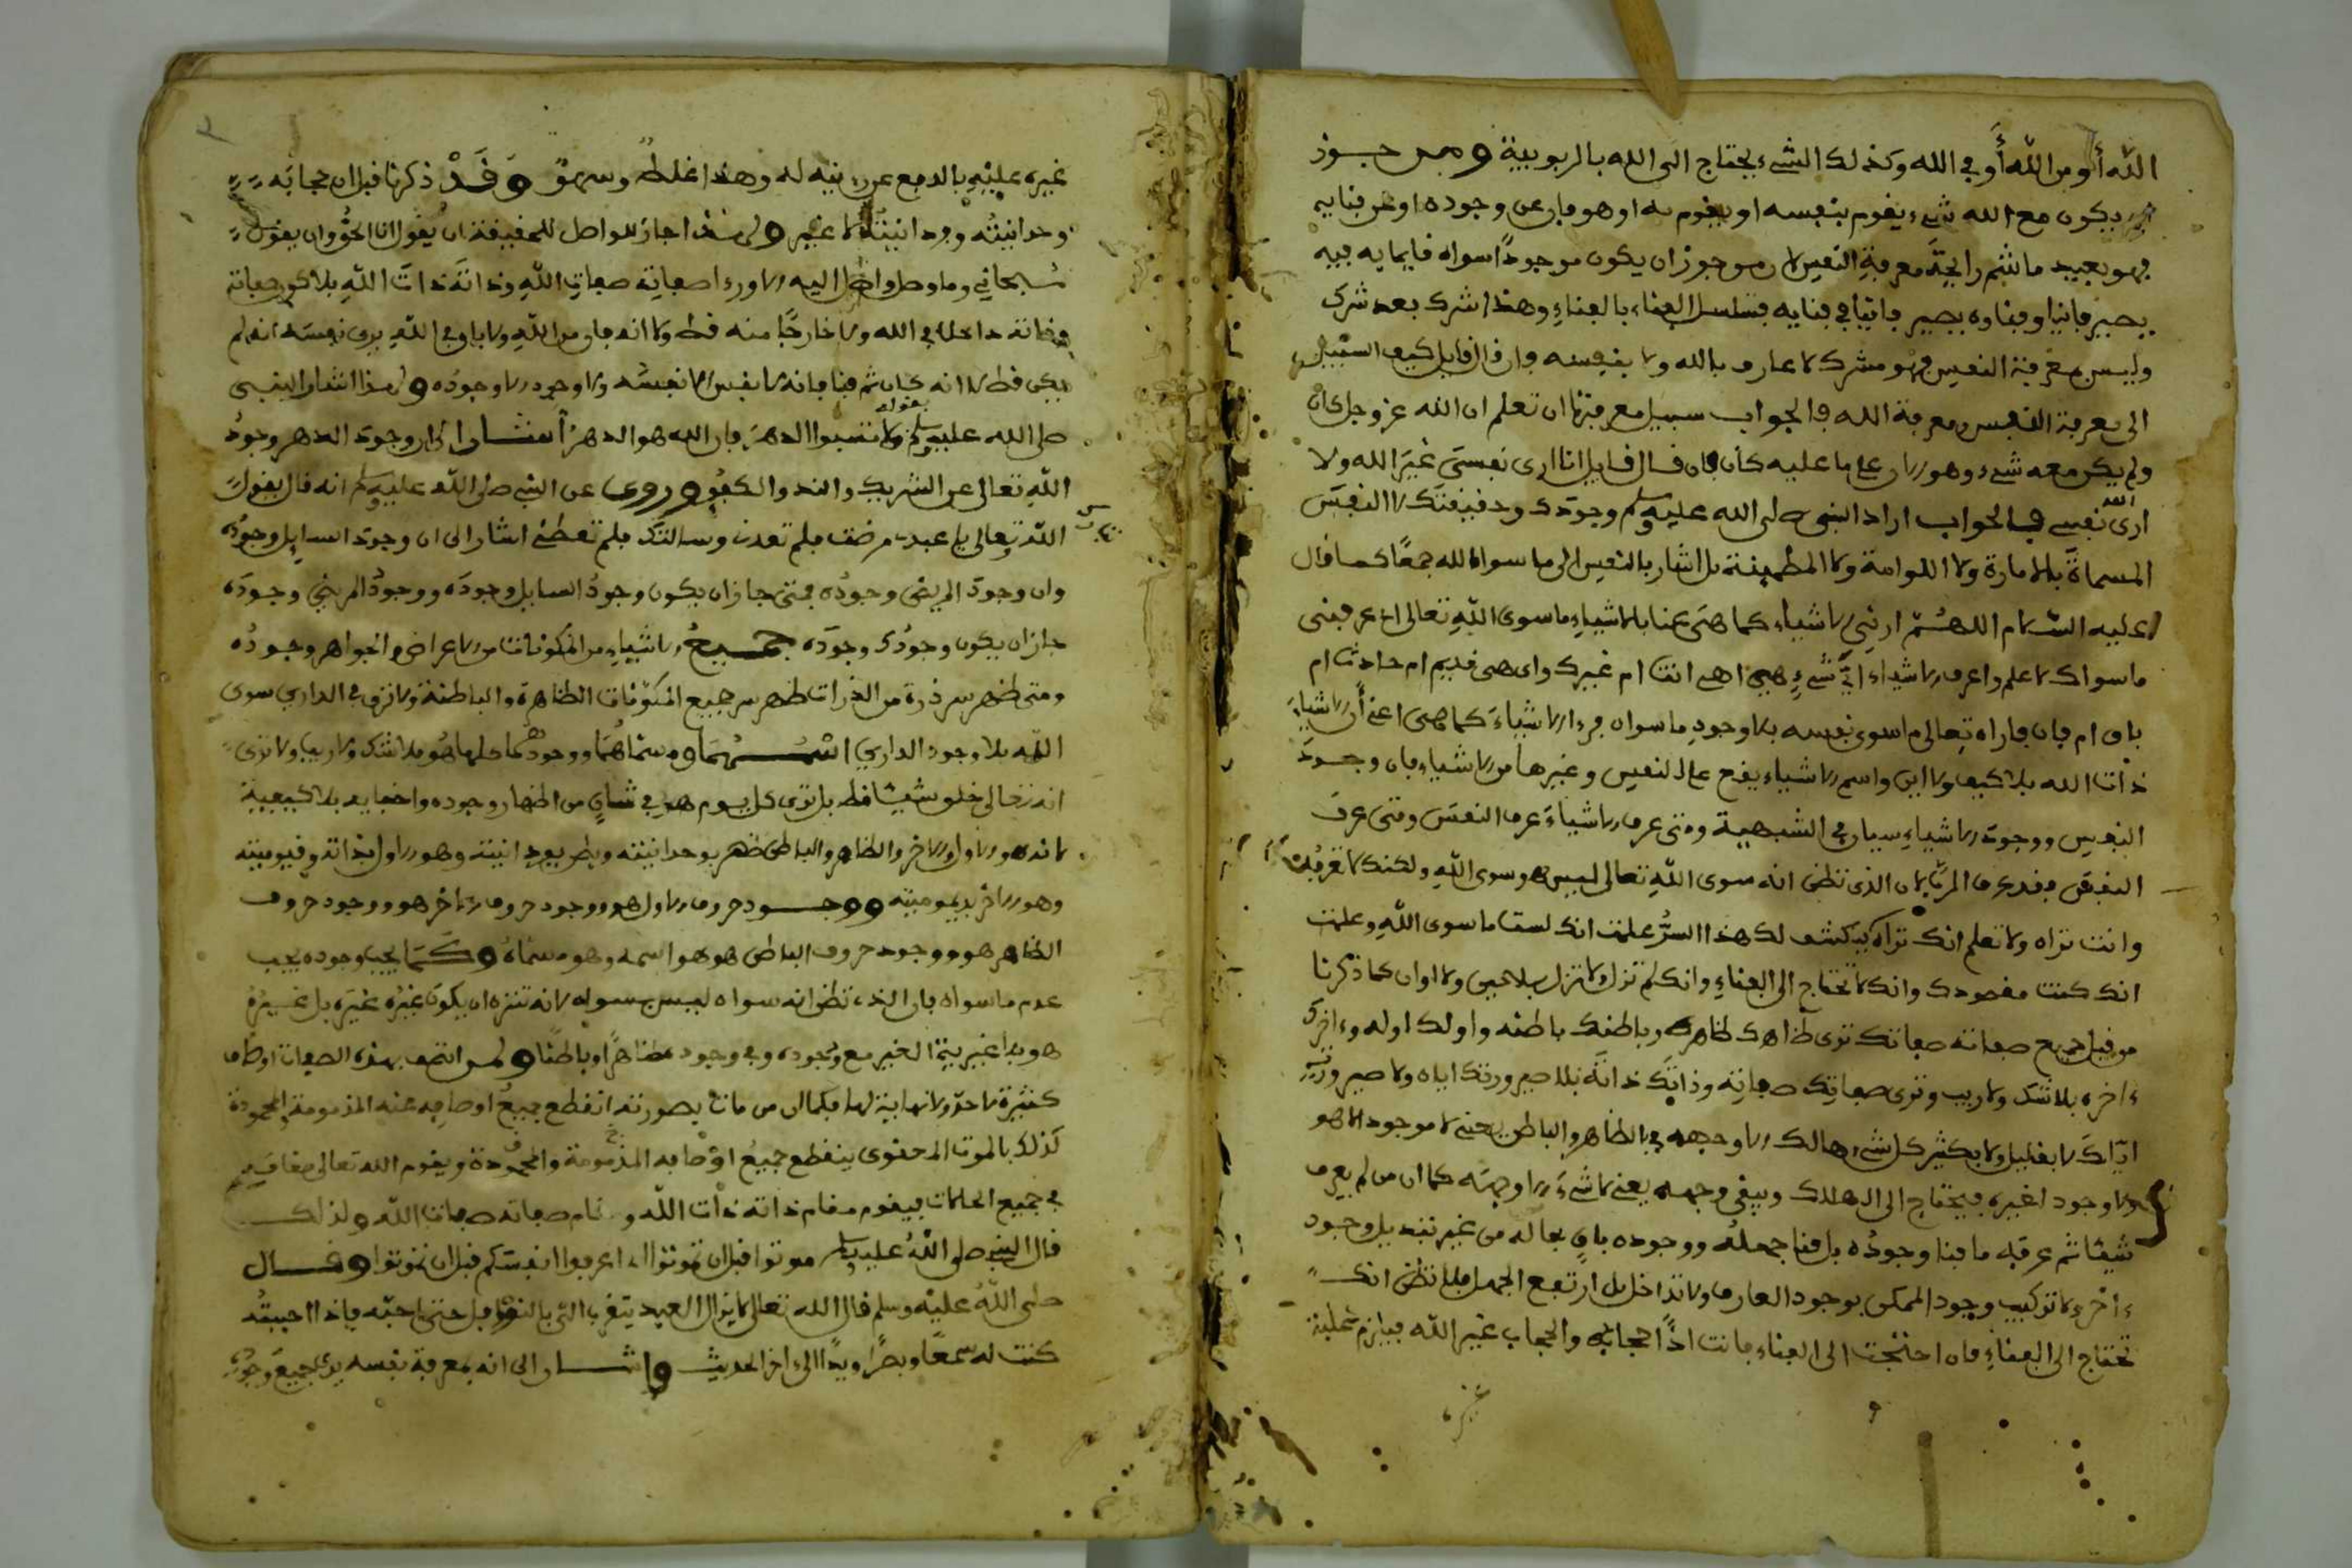 الله أو من الله أو في الله وكذلك الشيء يحتاج الى الله بالربوبية ومن جوز
ان يكون مع الله شيء يقوم بنفسه او يقوم به او هو فان عن وجوده او عن فنايه
فهو بعيد ما شم رايحة معرفة النفس لان من جوز ان يكون موجودا سواه قايما به فيه
يصير فانيا وفناوه يصير فانيا في فنايه فتسلسل الفناء بالفناء وهذا شرك بعد شرك
وليس معرفة النفس فهو مشرك لا عارف بالله ولا بنفسه فان قال قايل كيف السبيل
الى معرفة النفس ومعرفة الله فالجواب سبيل معرفتها ان تعلم ان الله عز وجل كان
ولم يكن معه شيء وهو الان على ما عليه كان فان قال قايل انا ارى نفسي غير الله ولا
ارى الله نفسي فالجواب اراد النبي صلى الله عليه وسلم وجودك وحقيقتك لا النفس
المسماة بالامارة ولا اللوامة ولا المطمينة بل اشار بالنفس الى ما سوا الله جمعا كما قال
عليه السلام اللهم ارني الاشياء كما هي عنا بالاشياء ما سوى الله تعالى اي عرفني
ما سواك لاعلم واعرف الاشياء اي شيء هي اهي انت ام غيرك واي هي قديم ام حادث ام
باق ام فان فاراه تعالى ما سوى نفسه بلا وجود ما سواه فرءا الاشياء كما هي اعني أن الاشياء
ذات الله بلا كيف ولا اين واسم الاشياء يقع على النفس وغيرها من الاشياء فان وجود
النفس ووجود الاشياء سيان في الشيئية ومتى عرف الاشياء عرف النفس ومتى عرف
النفس فقد عرف الرب لان الذي تظن انه سوى الله تعالى ليس هو سوى الله ولكنك لا تعرفه
وانت تراه ولا تعلم انك تراه فمتى كشف لك هذا السر علمت انك لست ما سوى الله وعلمت
انك كنت مقصودك وانك لا تحتاج الى الفناء وانك لم تزل ولا تزل بلا حين ولا اوان كما ذكرنا
من قبل جميع صفاته صفاتك ترى ظاهرك ظاهره وباطنك باطنه واولك اوله وءاخرك
ءاخره بلا شك ولا ريب وترى صفاتك صفاته وذاتك ذاته بلا صيرورتك اياه ولا صيرورته
اياك لا بقليل ولا بكثير كل شيء هالك الا وجهه في الظاهر والباطن يعني لا موجود الا هو
ولا وجود لغيره فيحتاج الى الهلاك ويبقى وجهه يعني لا شيء الا وجهه كما ان من لم يعرف
شيئا ثم عرفه ما فنا وجوده بل فنا جهله ووجوده باق بحاله من غير تبديل وجود
ءاخر ولا تركيب وجود الممكن بوجود العارف ولا تداخل بل ارتفع الجهل فلا تظن انك
تحتاج الى الفناء فان احتجت الى الفناء فانت اذا حجابه والحجاب غير الله فيلزم غلبة
غيره
غيره عليه بالدفع عن رؤيته له وهذا غلط وسهو وقد ذكرنا قبل ان حجابه
وحدانيته وفردانيته لا غير ولهذا اجاز للواصل للحقيقة ان يقول انا الحق وان يقول
سبحاني وما وصل واصل اليه الا ورءا صفاته صفات الله وذاته ذات الله بلا كون صفاته
وذاته داخلا في الله ولا خارجا منه قط ولا انه فان من الله ولا باق في الله يرى نفسه انه لم
يكن قط لا انه كان ثم فنا فانه لا نفس الا نفسه ولا وجود الا وجوده ولهذا اشار النبي
صلى الله عليه وسلم بقوله ولا تسبوا الدهر فان الله هو الدهر أشار الى ان وجود الدهر وجود
الله تعالى عن الشريك والند والكفو وروى عن النبي صلى الله عليه وسلم انه قال يقول
الله تعالى يا عبدي مرضت فلم تعدني وسالتك فلم تعطني اشار الى ان وجود السايل وجوده
وان وجود المريض وجوده فمتى جاز ان يكون وجود السايل وجوده ووجود المريض وجوده
جاز ان يكون وجودك وجوده جميع الاشياء من المكونات من الاعراض والجواهر وجوده
ومتى ظهر سر ذرة من الذرات ظهر سر جميع المكونات الظاهرة والباطنة ولا ترى في الدارين سوى
الله بلا وجود الدارين اسمهما ومسماهما ووجودهما كلها هو بلا شك ولا ريب ولا ترى
انه تعالى خلق شيئا قط بل ترى كل يوم هو في شان من اظهار وجوده واخفايه بلا كيفية
لانه هو الاول والاخر والظاهر والباطن ظهر بوحدانيته وبطن بفردانيته وهو الاول بذاته وقيوميته
وهو الاخر بديموميته ووجود حروف الاول هو ووجود حروف الاخر هو ووجود حروف
الظاهر هو ووجود حروف الباطن هو هو اسمه وهو مسماه وكما يجب وجوده يجب
عدم ما سواه فان الذي تظن انه سواه ليس بسواه لانه تنزه ان يكون غيره غيره بل غيره
هو بلا غيرية الغير مع وجوده وفي وجوده ظاهرا وباطنا ولمن اتصف بهذه الصفات اوصاف
كثيرة لا حد ولا نهاية لها فكما ان من مات بصورته انقطع جميع اوصافه عنه المذمومة والمحمودة
كذلك بالموت المعنوي ينقطع جميع اوصافه المذمومة والمحمودة ويقوم الله تعالى مقامه
في جميع الحالات فيقوم مقام ذاته ذات الله ومقام صفاته صفات الله ولذلك
قال النبي صلى الله عليه وسلم موتوا قبل ان تموتوا اي اعرفوا انفسكم قبل ان تموتوا وقال
صلى الله عليه وسلم قال الله تعالى لا يزال العبد يتقرب الي بالنوافل حتى احبه فاذا احببته
كنت له سمعا وبصرا ويدا الى اخر الحديث واشار الى انه بمعرفة نفسه يرى جميع وجوده